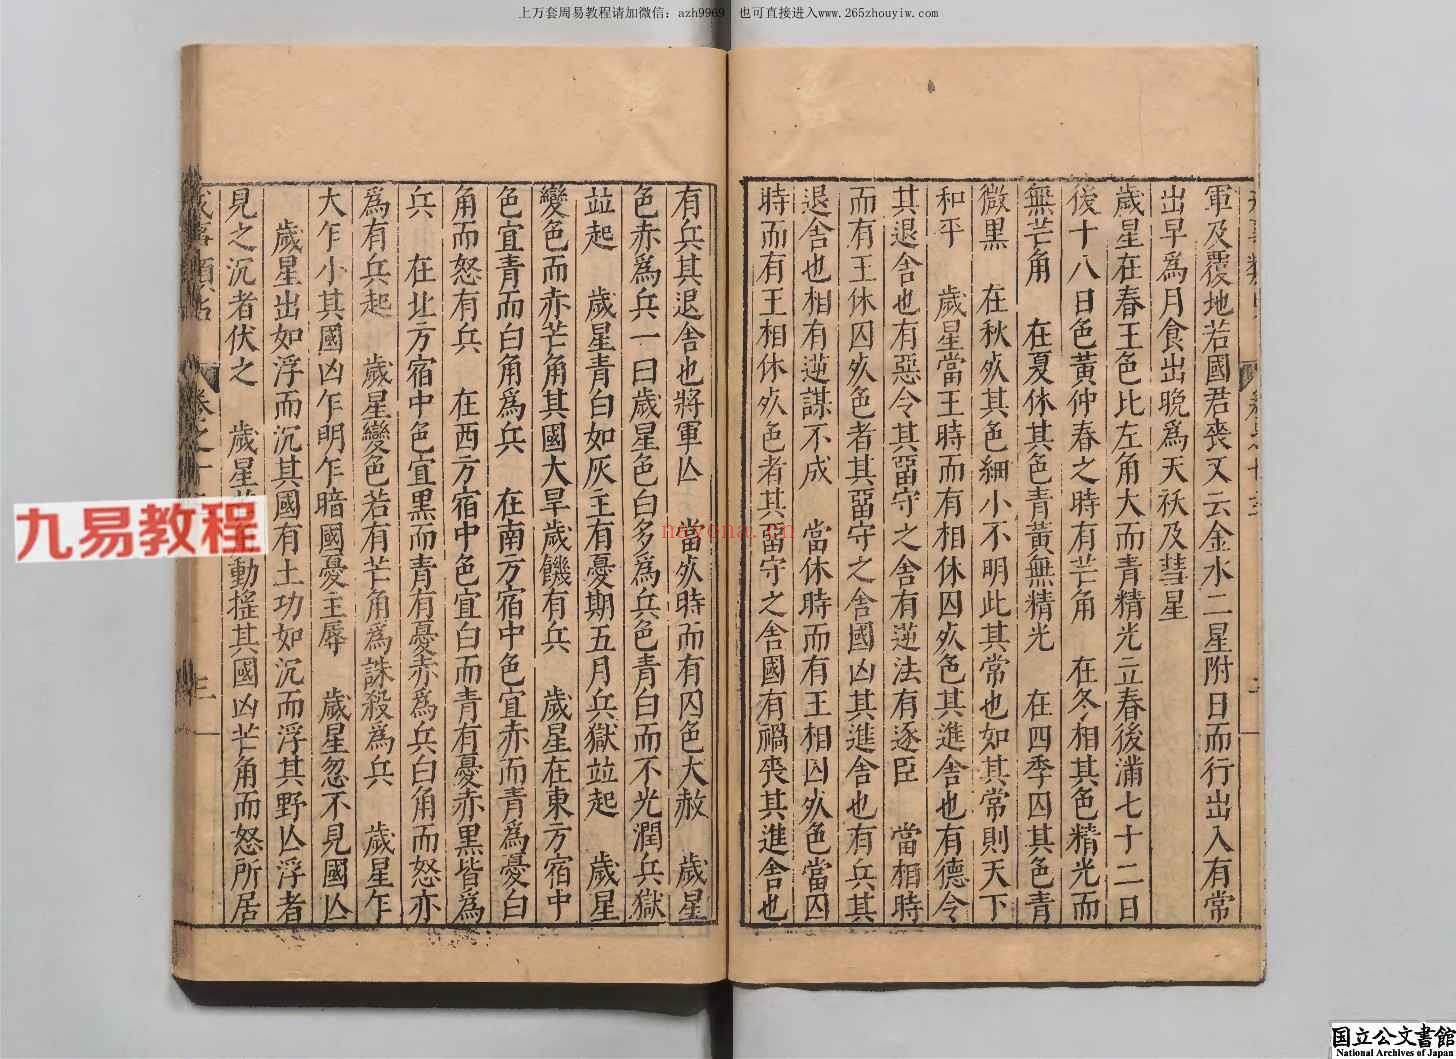 上万套周易教程请加微信：azh9969 也可直接进入www.265zhouyiw.com
軍及覆地若國君喪又云金水二星附日而行出入有常
出早爲月食出晚爲天祅及彗星
歲星在春王色比左角大而青精光立春後滿七十二日
後十八日色黃仲春之時有芒角　在冬相其色精光而
無芒角　在夏休其色青黃無精光　在四季囚其色青
微黑　在秋死其色細小不明此其常也如其常則天下
和平　歲星當王時而有相休囚死色其進舍也有德令
其退舍也有惡令其留守之舍有逆法有逐臣　當相時
而有王休囚死色者其留守之舍國凶其進舍也有兵其
退舍也相有逆謀不成　當休時而有王相囚死色當囚
時而有王相休死色者其留守之舍國有禍喪其進舍也
有兵其退舍也將軍亾　當死時而有囚色大赦　歲星
色赤爲兵一曰歲星色白多爲兵色青白而不光潤兵獄
竝起　歲星青白如灰主有憂期五月兵獄竝起　歲星
變色而赤芒角其國大旱歲饑有兵　歲星在東方宿中
色宜青而白角爲兵　在南方宿中色宜赤而青爲憂白
角而怒有兵　在西方宿中色宜白而青有憂赤黑皆爲
兵　在北方宿中色宜黑而青有憂赤爲兵白角而怒亦
爲有兵起　歲星變色若有芒角爲誅殺爲兵　歲星乍
大乍小其國凶乍明乍暗國憂主辱　歲星忽不見國亾
歲星出如浮而沉其國有土功如沉而浮其野亾浮者
見之沉者伏之　歲星動搖其國凶芒角而怒所居
卷之十
三
九易教程
nayona.cn
国立公文書館
National Archives of Japan